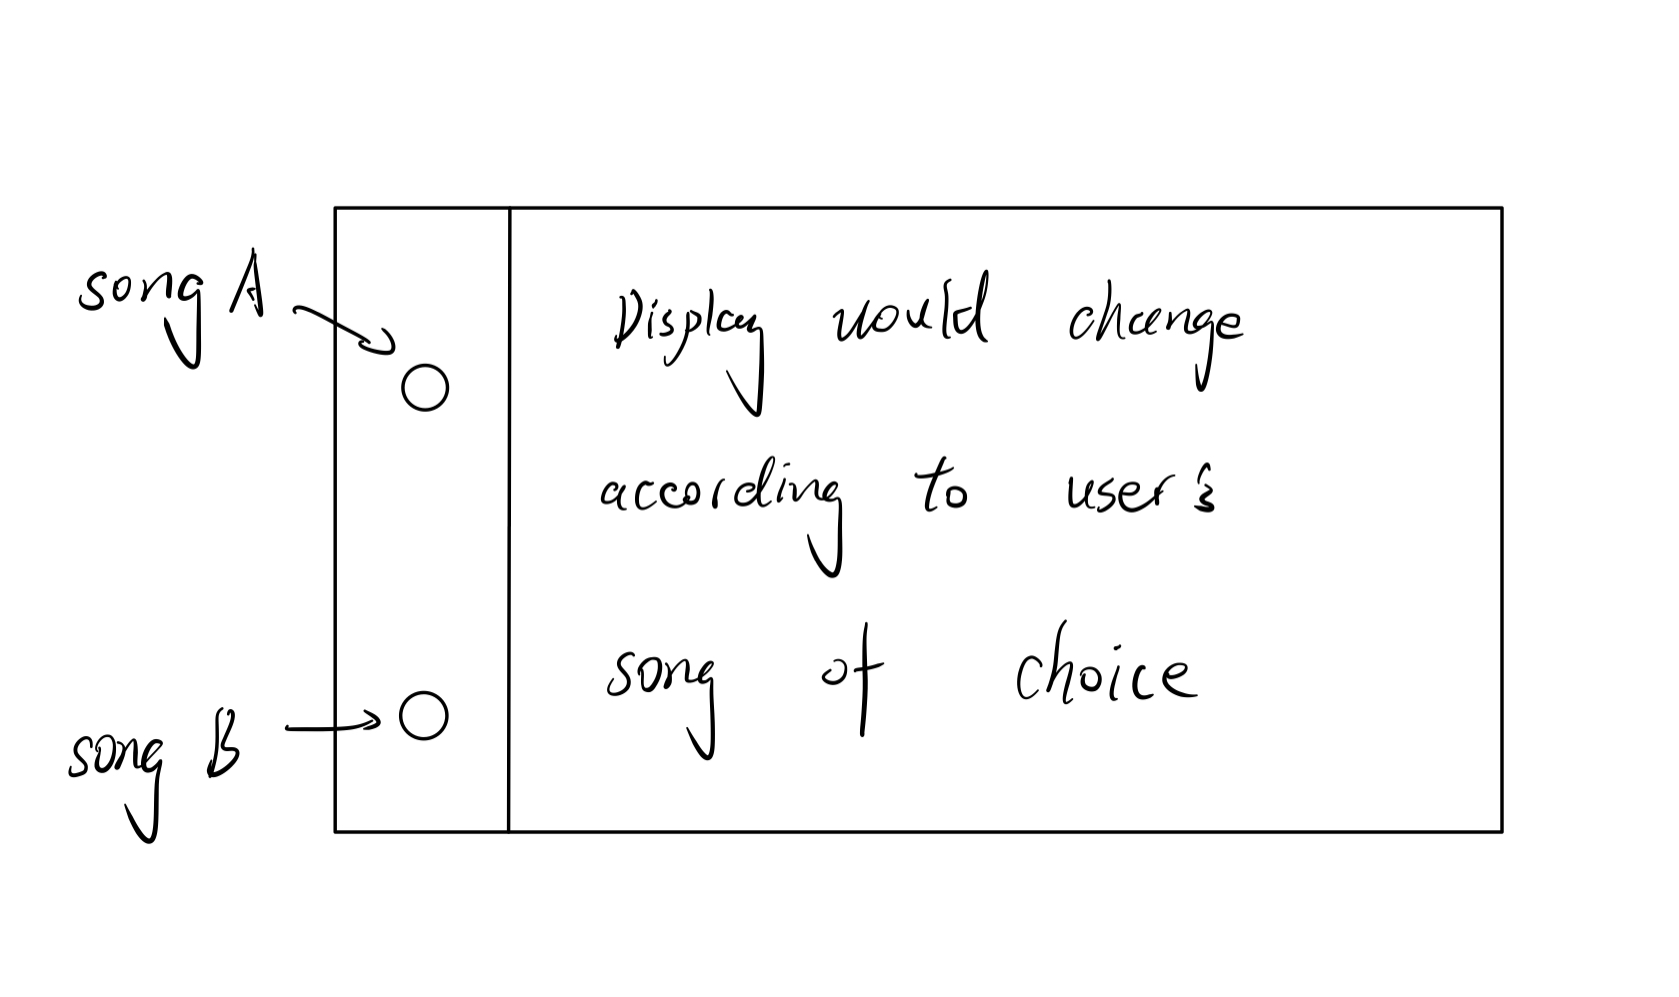 song A
Display would change
according to user's
song of choice
song B